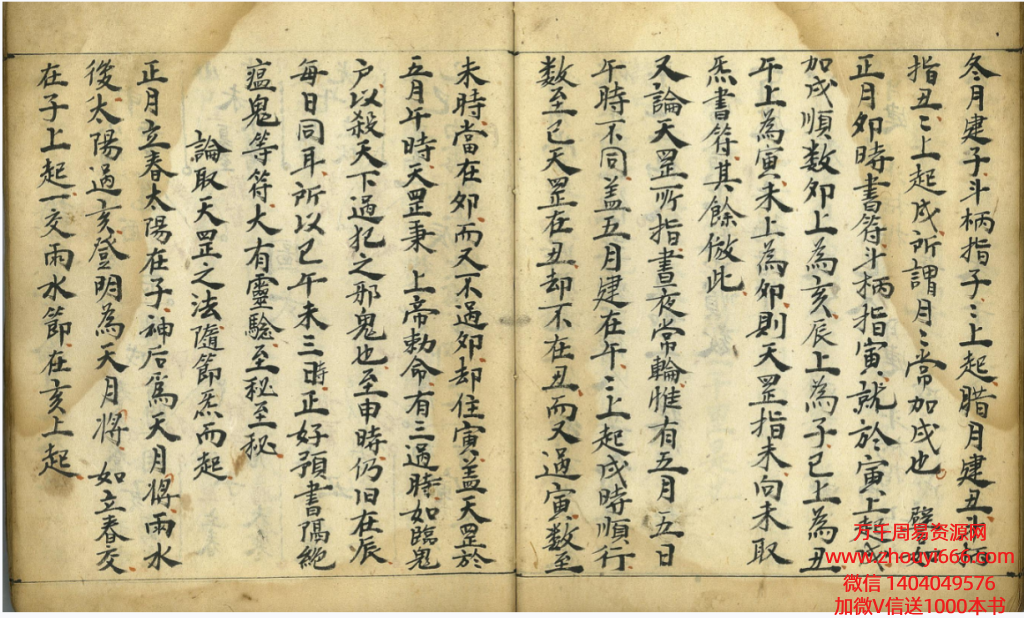 冬月建子斗柄指子〻上起腊月建丑斗柄
指丑〻上起戌所謂月〻常加戌也 譬如
正月卯時書符斗柄指寅就於寅上起以
加戌順数卯上為亥辰上為子巳上為丑
午上為寅未上為卯則天罡指未向未取
炁書符其餘倣此
又論天罡所指晝夜常輪惟有五月五日
午時不同盖五月建在午〻上起戌時順行
数至巳天罡在丑却不在丑而又過寅数至
未時當在卯而又不過卯却住寅盖天罡於
五月午時天罡秉 上帝勅命有三過時如臨鬼
户以殺天下過犯之邪鬼也至申時仍旧在辰
每日同耳所以巳午未三時正好預書隔絶
瘟鬼等符大有靈驗至秘至秘
論取天罡之法隨節炁而起
正月立春太陽在子神后為天月將雨水
後太陽過亥登明為天月將 如立春交
在子上起一交雨水節在亥上起
万千周易资源网
www.zhouyi666.com
微信 1404049576
加微V信送1000本书